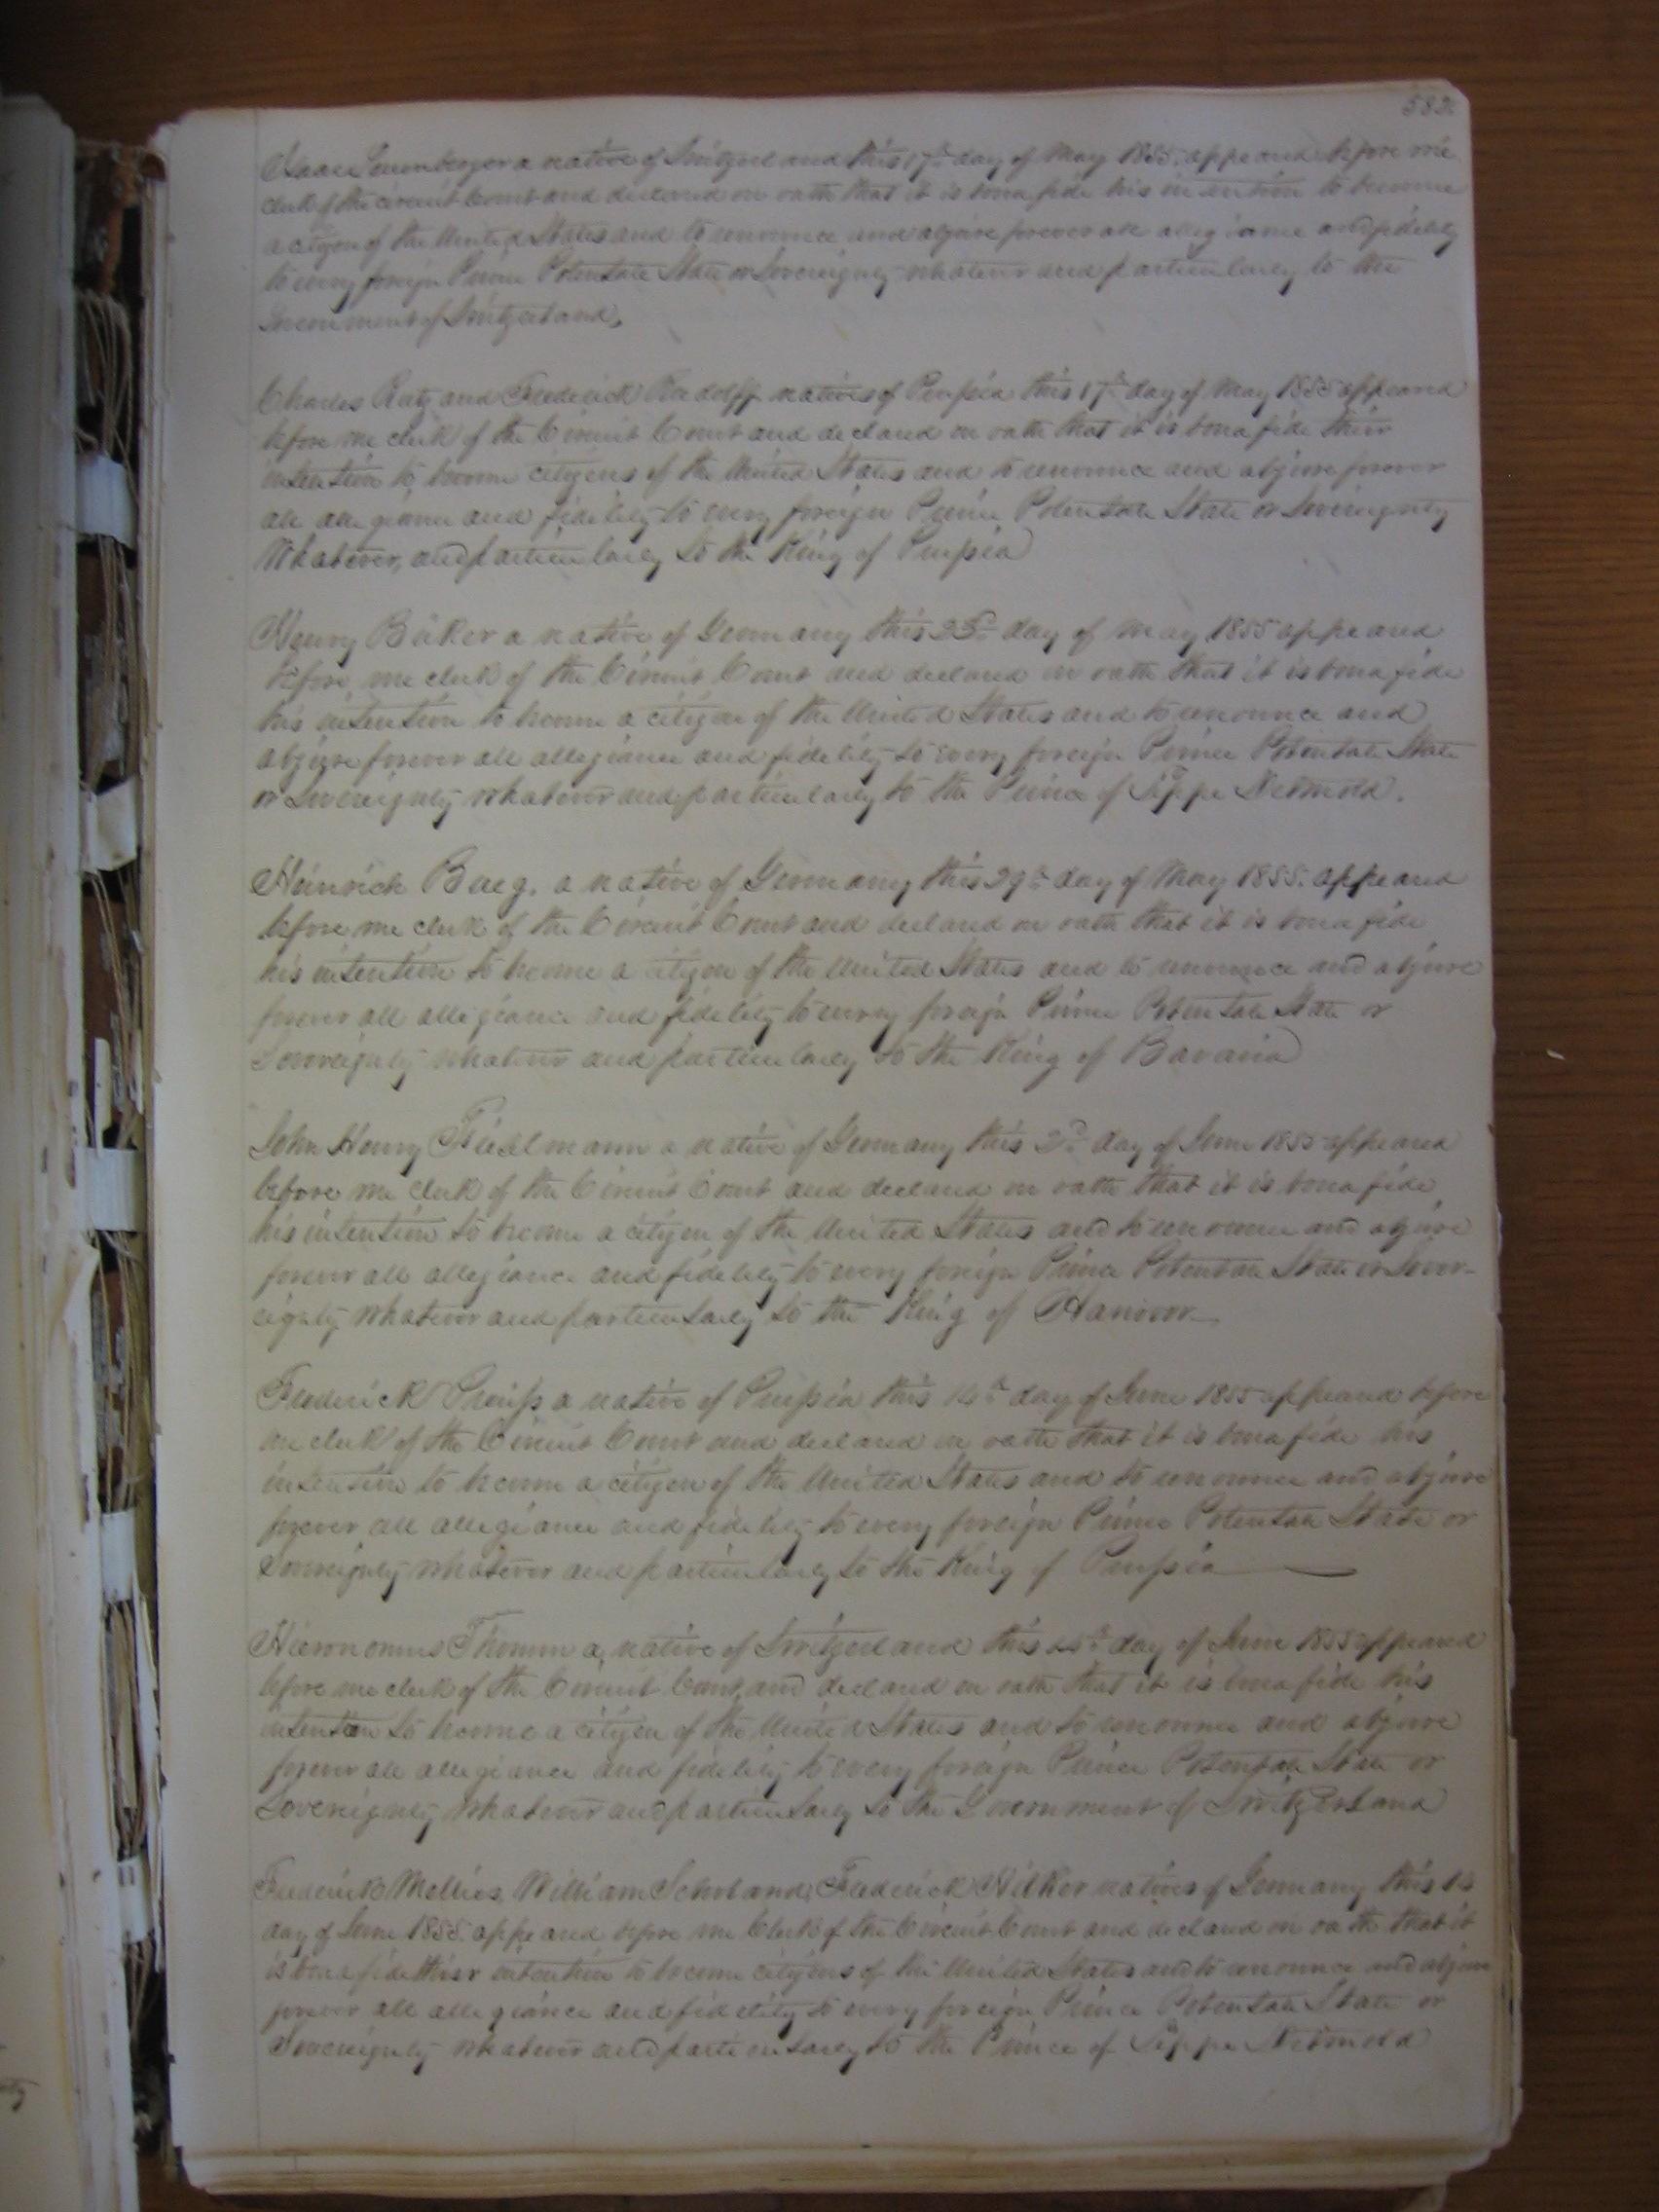 582
Isaac a native of Switzerland this 17th day of May 1855 appeared before me
clerk of the circuit Court and declared on oath that it is bona fide his intention to become
a citizen of the United States and to renounce and abjure forever all allegiance and fidelity
to every foreign Prince Potentate State or Sovereignty whatever and particularly to the
Government of Switzerland,
Charles and Frederick natives of Prussia this 17th day of May 1855 appeared
before me clerk of the Circuit Court and declared on oath that it is bona fide their
intention to become citizens of the United States and to renounce and abjure forever
all allegiance and fidelity to every foreign Prince Potentate State or Sovereignty
Whatever, and particularly to the King of Prussia
Henry Büker a native of Germany this 23d day of May 1855 appeared
before me clerk of the Circuit Court and declared on oath that it is bona fide
his intention to become a citizen of the United States and to renounce and
abjure forever all allegiance and fidelity to every foreign Prince Potentate State
or Sovereignty whatever and particularly to the Prince of Lippe Detmold.
Heinrich a native of Germany this 29th day of May 1855. appeared
before me clerk of the Circuit Court and declared on oath that it is bona fide
his intention to become a citizen of the United States and to renounce and abjure
forever all allegiance and fidelity to every foreign Prince Potentate State or
Sovereignty whatever and particularly to the King of Bavaria
John Henry a native of Germany this 2d day of June 1855 appeared
before me clerk of the Circuit Court and declared on oath that it is bona fide
his intention to become a citizen of the United States and to renounce and abjure
forever all allegiance and fidelity to every foreign Prince Potentate State or Sover-
eignty whatever and particularly to the King of Hanover
Frederick a native of Prussia this 14th day of June 1855 appeared before
me clerk of the Circuit Court and declared on oath that it is bona fide his
intention to become a citizen of the United States and to renounce and abjure
forever all allegiance and fidelity to every foreign Prince Potentate State or
Sovereignty whatever and particularly to the King of Prussia
Thomm a native of Switzerland this day of June 1855 appeared
before me clerk of the Circuit Court and declared on oath that it is bona fide his
intention to become a citizen of the United States and to renounce and abjure
forever all allegiance and fidelity to every foreign Prince Potentate State or
Sovereignty whatever and particularly to the Government of Switzerland
Frederick Mellies, William Frederick Hilker natives of Germany this
day of June 1855. appeared before me Clerk of the Circuit Court and declared on oath that it
is bona fide their intention to become citizens of the United States and to renounce and abjure
forever all allegiance and fidelity to every foreign Prince Potentate State or
Sovereignty whatever and particularly to the Prince of Lippe Detmold